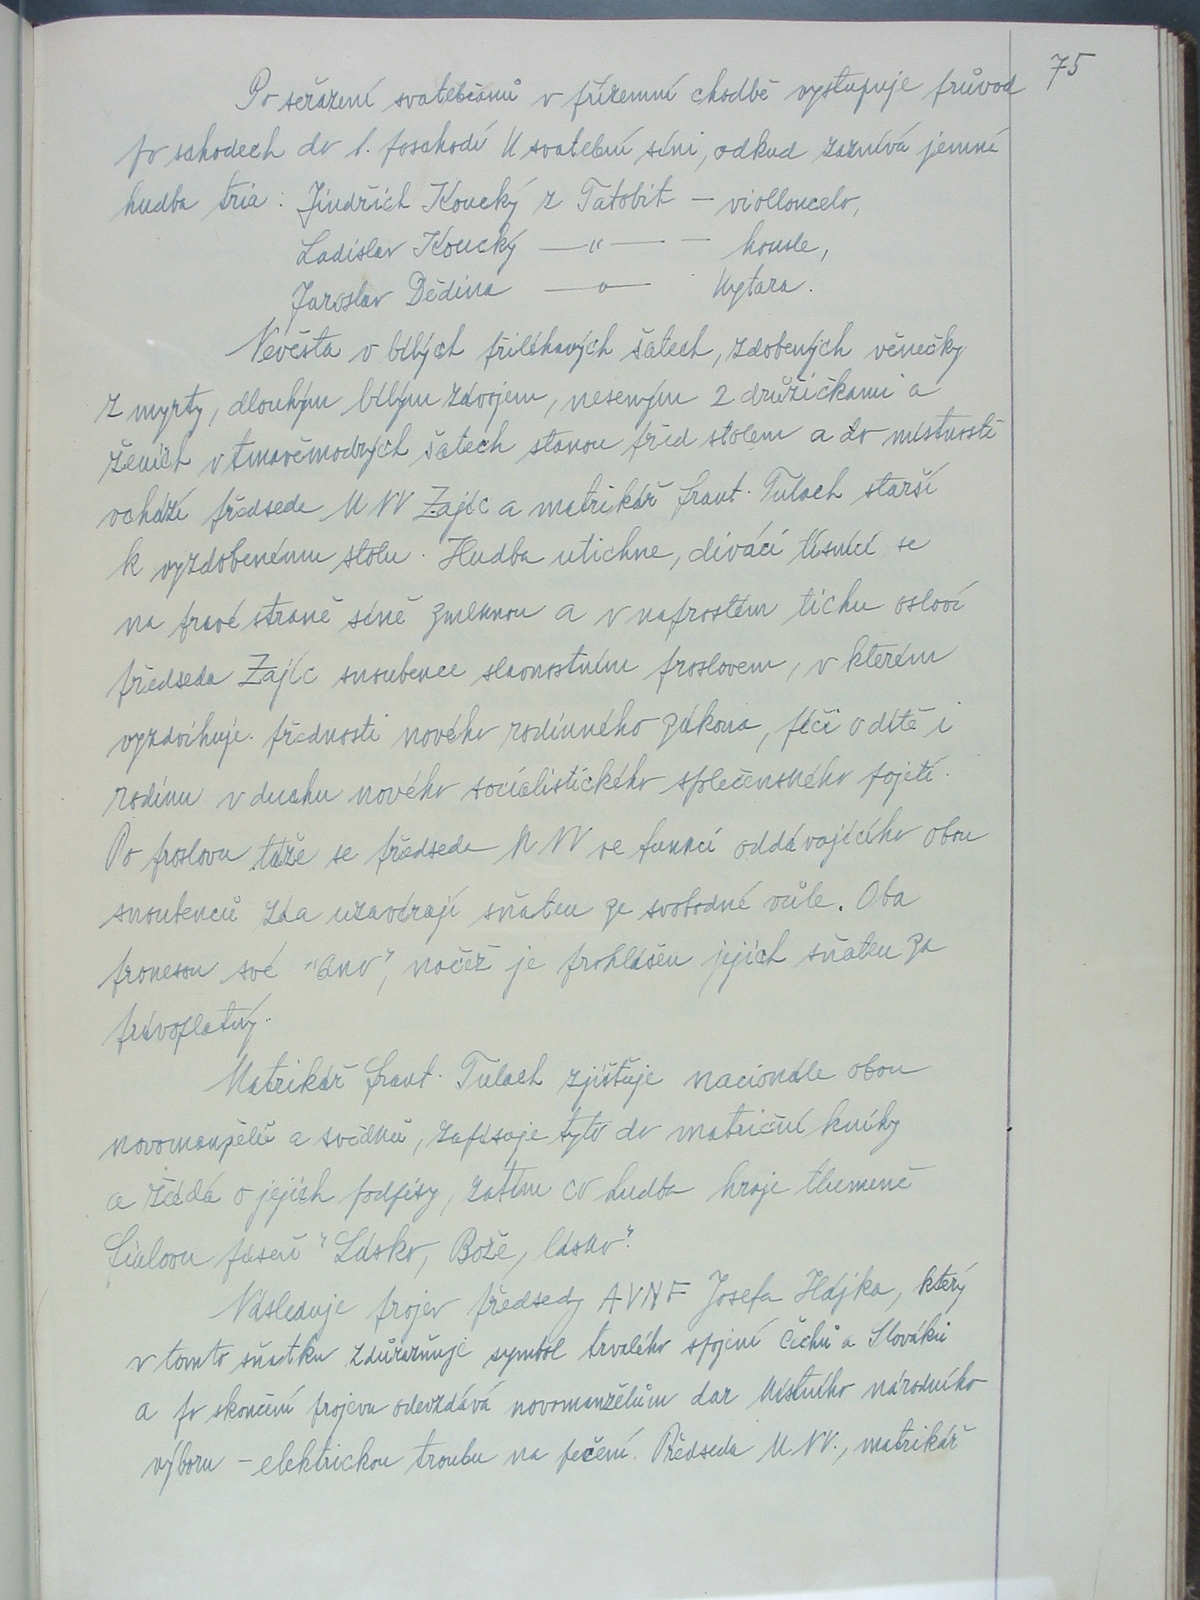 75
Po seřazení svatebčanů v přízemní chodbě vystupuje průvod
po schodech do 1. poschodí k svatební síni, odkud zaznívá jemná
hudba tria: Jindřich Koucký z Tatobit – violloncelo,
Ladislav Koucký —"— – housle,
Jaroslav Dědina —"— kytara.
Nevěsta v bílých přiléhavých šatech, zdobených věnečky
z myrty, dlouhým bílým závojem, neseným 2 družičkami a
ženich v tmavěmodrých šatech stanou před stolem a do místnosti
vchází předseda MNV Zajíc a matrikář Frant. Tulach starší
k vyzdobenému stolu. Hudba utichne, diváci tísnící se
na pravé straně síně zmlknou a v naprostém tichu osloví
předseda Zajíc snoubence slavnostním proslovem, v kterém
vyzdvihuje přednosti nového rodinného zákona, péči o dítě i
rodinu v duchu nového socialistického společenského pojetí.
Po proslovu táže se předseda MNV ve funkci oddávajícího obou
snoubenců zda uzavírají sňatek ze svobodné vůle. Oba
pronesou své "Ano", načež je prohlášen jejich sňatek za
právoplatný.
Matrikář Frant. Tulach zjišťuje nacionále obou
novomanželů a svědků, zapisuje tyto do matriční knihy
a žádá o jejich podpisy, zatím co hudba hraje tlumeně
Fialovu píseň "Lásko, Bože, lásko".
Následuje projev předsedy AVNF Josefa Hájka, který
v tomto sňatku zdůrazňuje symbol trvalého spojení Čechů a Slováků
a po skončení projevu odevzdává novomanželům dar Místního národního
výboru – elektrickou troubu na pečení. Předseda MNV., matrikář